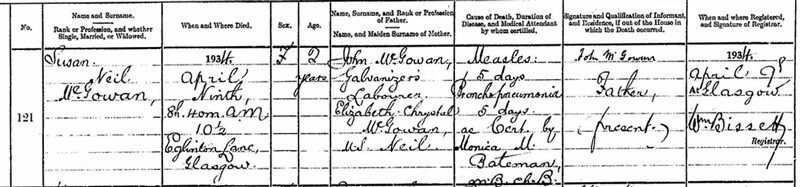 No.
Name and Surname.
Rank or Profession, and whether
Single, Married, or Widowed.
When and Where Died.
Sex.
Age.
Name, Surname, and Rank or Profession
of Father.
Name, and Maiden Surname of Mother.
Cause of Death, Duration of
Disease, and Medical Attendant
by whom certified.
Signature and Qualification of Informant,
and Residence, if out of the House in
which the Death occurred.
When and where Registered,
and Signature of Registrar.
121
Susan
Neil
McGowan,
1934,
April
Ninth,
8h. 40m. A.M
10½
Eglinton Lane,
Glasgow.
F
2
years
John McGowan,
Galvanizers
Labourer
Elizabeth Chrystal
McGowan,
M.S. Neil.
Measles:
5 days
Bronchopneumonia
5 days.
as Cert. by
Monica M.
Bateman,
M.B. Ch.B.
John McGowan
Father,
(present.)
1934,
April 9th
At Glasgow
Wm Bissett
Registrar.